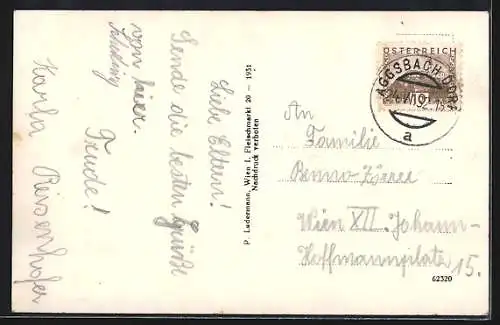 Liebe Eltern!
Sende die besten Grüße
von hier.
Trude!
Karla Reisenhofer
P. Ledermann, Wien I. Fleischmarkt 20 – 1931
Nachdruck verboten
ÖSTERREICH
AGGSBACH DORF
a
An
Familie
Benno
Wien XII. Johann-
Hoffmannplatz 15.
62320